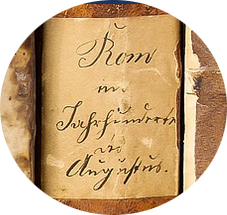 Rom
im
Jahrhunderte
des
Augustus.